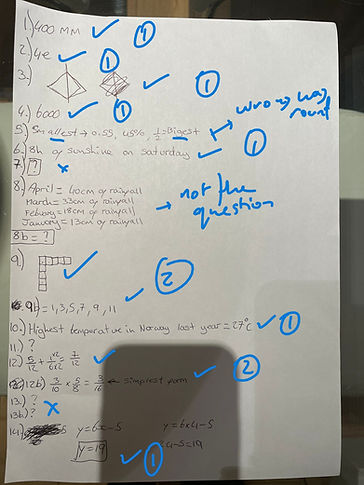 1.) 400 mm 1
2.) 4e 1
3.) 1
4.) 6000 1
5) Smallest → 0.55, 45%, 1/2 = Bigest wrong way round
6.) 8h of sunshine on Saturday 1
7) ? x
8.) April = 40cm of rainfall
March = 33cm of rainfall → not the question
Febuary = 18cm of rainfall
January = 13cm of rainfall
8b = ?
9.) 2
9b = 1, 3, 5, 7, 9, 11
10.) Highest temperative in Norway last year = 27°C 1
11.) ?
12.) 5/12 + 1x2/6x2 = 7/12
12b.) 3/10 x 5/8 = 3/16 ← simplest form 2
13.) ?
13b.) ? x
14.) y=6x-5 y=6x4-5
y=19 24-5=19 1